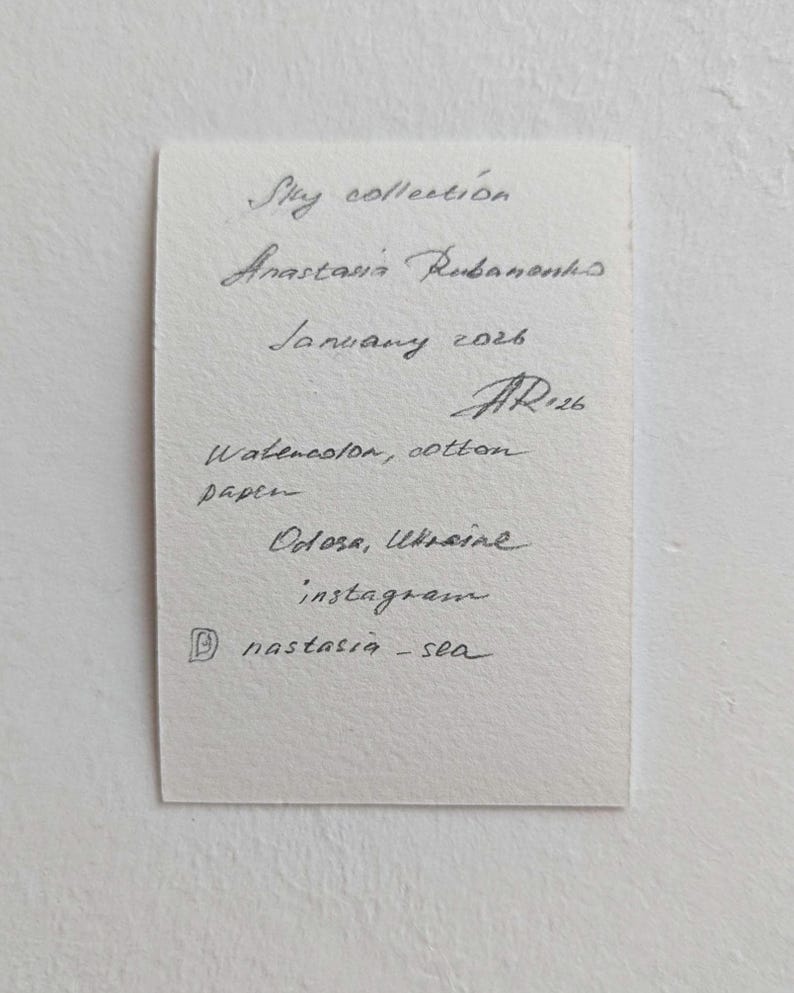 Sky collection
Anastasia Rubanenko
January 2026
AR'26
Watercolor, cotton
paper
Odesa, Ukraine
instagram
nastasia_sea